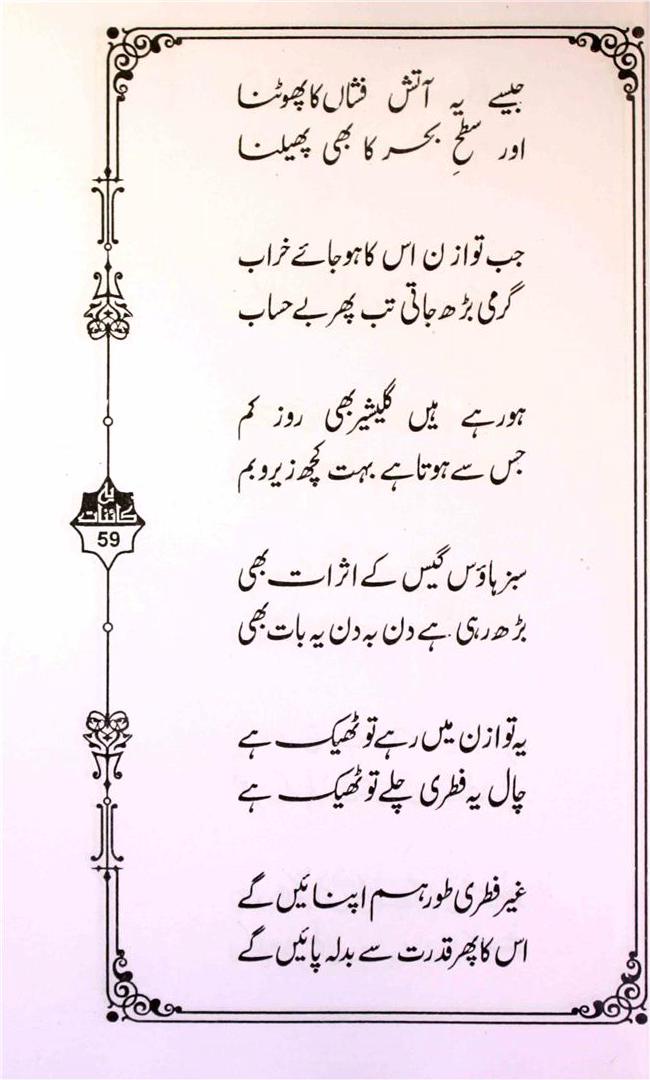 جیسے یہ آتش فشاں کا پھوٹنا
اور سطحِ بحر کا بھی پھیلنا
جب توازن اس کا ہو جائے خراب
گرمی بڑھ جاتی تب پھر بے حساب
ہو رہے ہیں گلیشیر بھی روز کم
جس سے ہوتا ہے بہت کچھ زیر و بم
سبز ہاؤس گیس کے اثرات بھی
بڑھ رہی ہے دن بہ دن یہ بات بھی
یہ توازن میں رہے تو ٹھیک ہے
چال یہ فطری چلے تو ٹھیک ہے
غیر فطری طور ہم اپنائیں گے
اس کا پھر قدرت سے بدلہ پائیں گے
یہ
کائنات
59